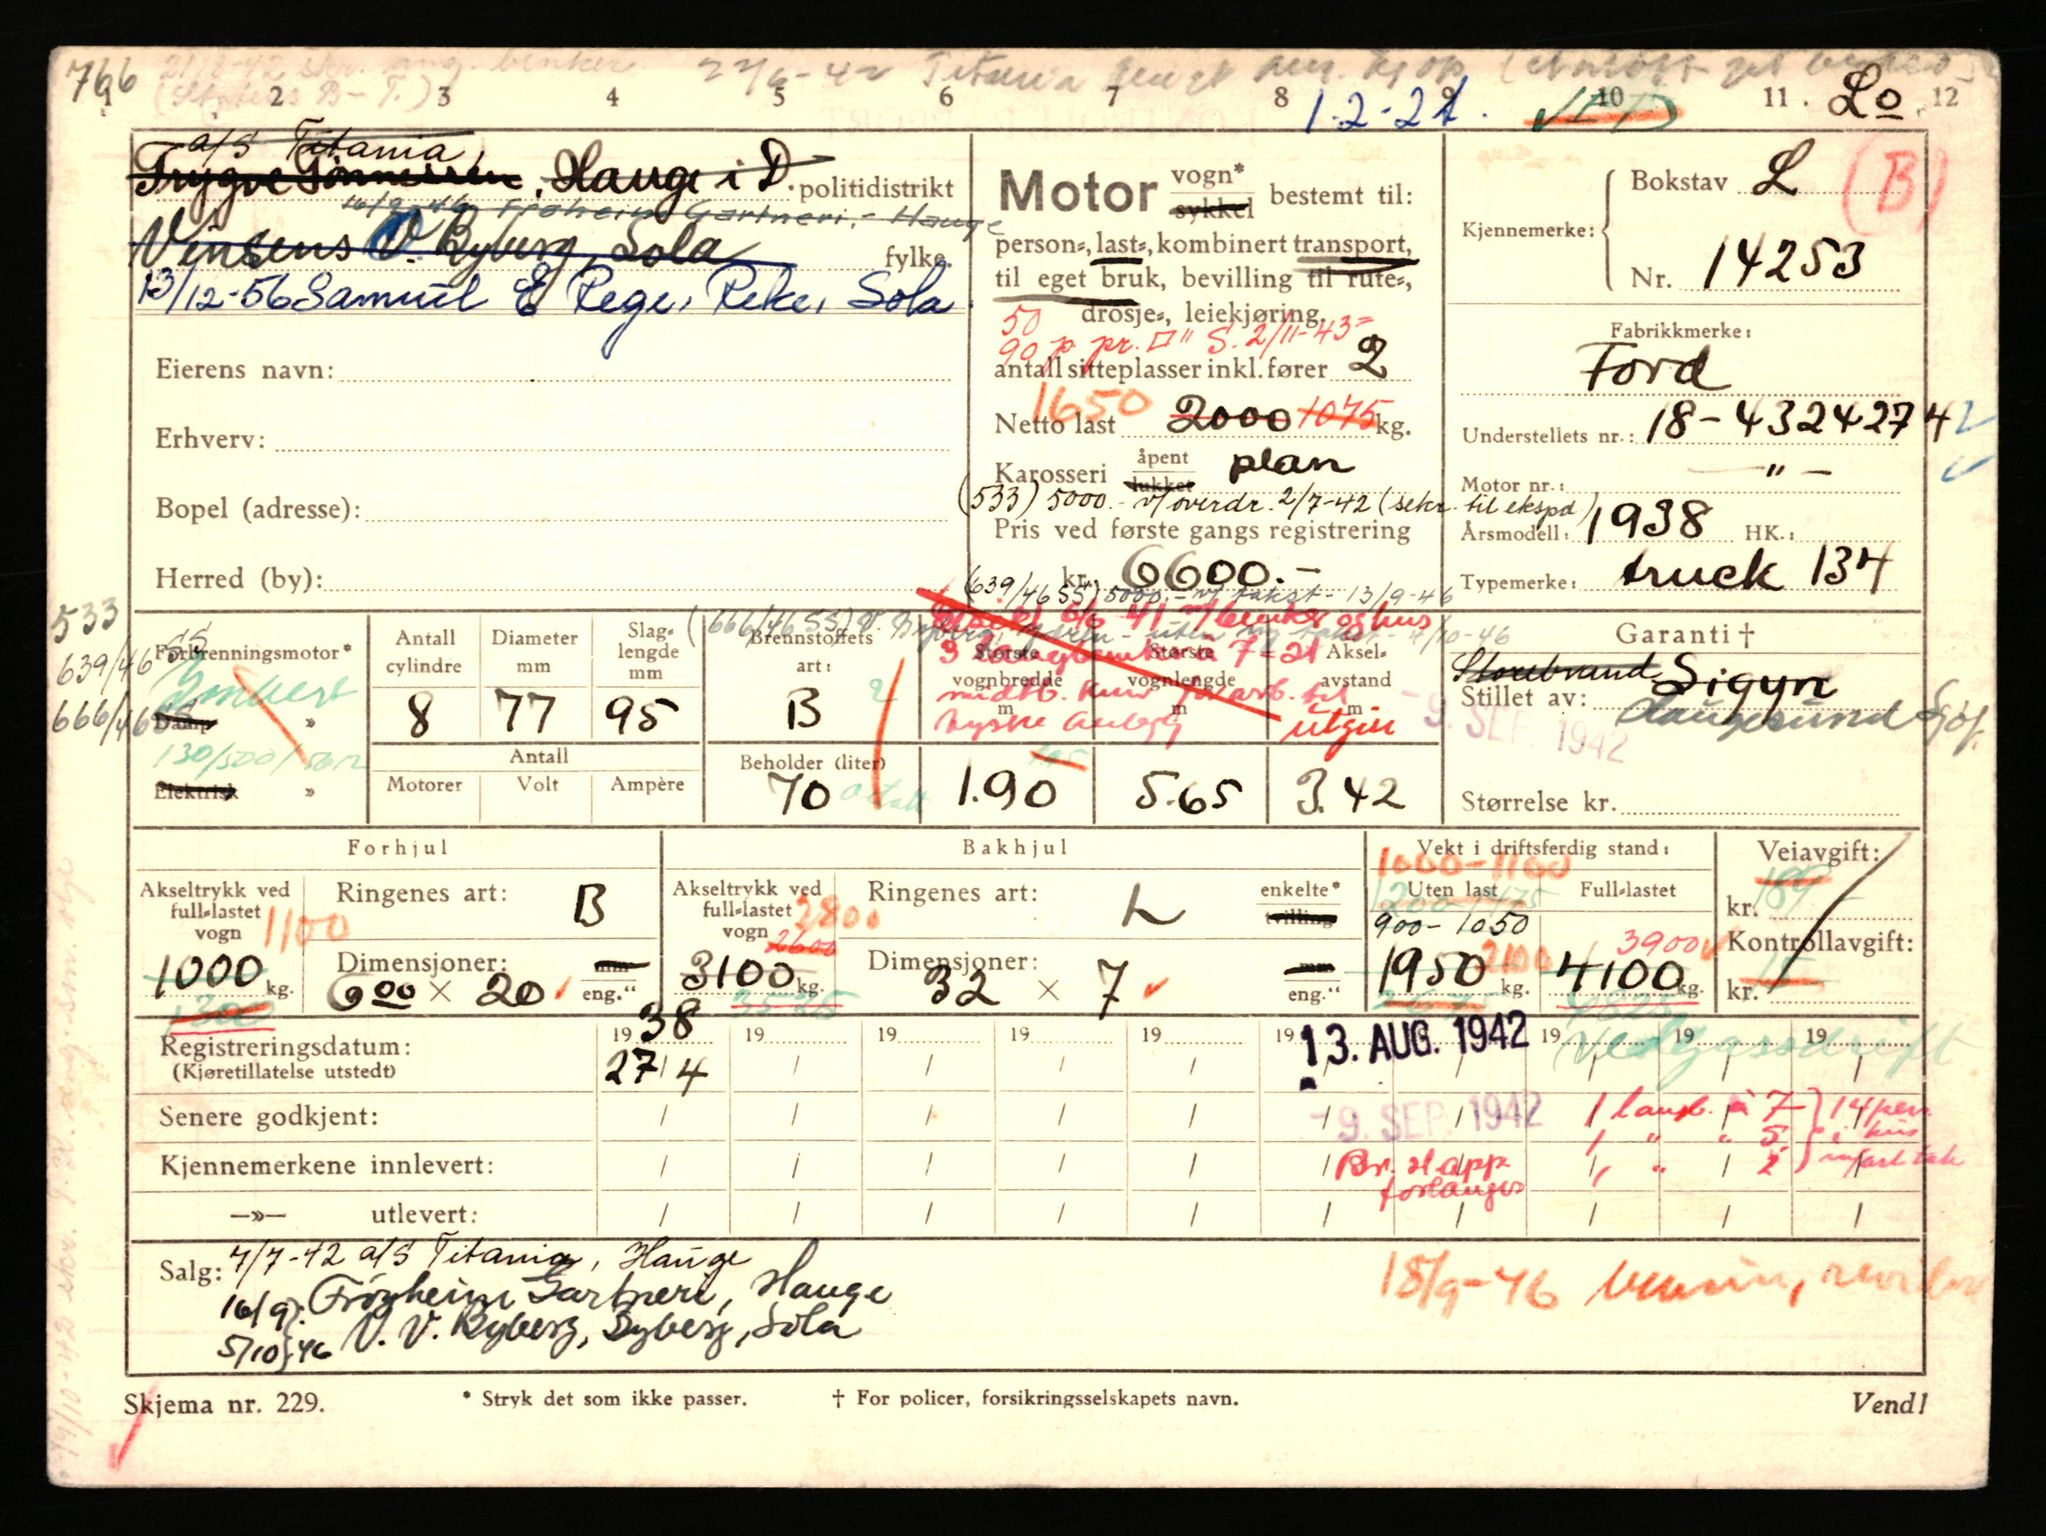 766
1 2 3 4 5 6 7 8 9 10 11 12
27/6-42 Titania
1.2-24. Lo
a/S Titania,
Trygve Tønnessen, Hauge i D. politidistrikt
16/9-46 Frøheim Gartneri, Hauge
Vinsens V. Ryberg, Sola fylke.
13/12-56 Samuel E Rege, Reke, Sola.
Eierens navn:
Erhverv:
Bopel (adresse):
Herred (by):
Motor vogn* sykkel bestemt til:
person=, last=, kombinert transport,
til eget bruk, bevilling til rute=,
drosje=, leiekjøring.
50
90 p. pr. S. 2/11-43=
antall sitteplasser inkl. fører 2
1650
Netto last 2000 1075 kg.
Karosseri åpent lukket plan
(533) 5000.- v/overdr. 2/7-42 (sekr. til ekspd)
Pris ved første gangs registrering
kr. 6600.-
(639/46 SS) 5000.- v/ takst - 13/9-46
Kjennemerke: Bokstav L (B)
Nr. 14253
Fabrikkmerke:
Ford
Understellets nr.: 18-4324274
Motor nr.: — " —
Årsmodell: 1938 HK.:
Typemerke: truck 134
533
639/46 SS
666/46 SS
Forbrenningsmotor*
Imbert
Damp »
130/500/
Elektrisk »
Antall cylindre 8
Diameter mm 77
Slag=lengde mm 95
Antall
Motorer Volt Ampère
(666/46 SS) V. Ryberg,
Brennstoffets art: B
Beholder (liter) 70
Største vognbredde m 1.90
Største vognlengde m 5.65
Aksel=avstand m 3.42
utgår
Garanti †
Storebrand Sigyn
Stillet av: Haugesund Sjøf.
- 9. SEP. 1942
Størrelse kr.
Forhjul
Akseltrykk ved full=lastet vogn 1100
1000 kg.
1300
Ringenes art: B
Dimensjoner: mm
6.00 × 20 eng."
Bakhjul
Akseltrykk ved full=lastet vogn 2800
2600
3100 kg.
3525
Ringenes art: L enkelte* tvilling
Dimensjoner: mm
32 × 7 eng."
Vekt i driftsferdig stand:
1000-1100
Uten last Full=lastet
1200-1475
900-1050
1950 2100 kg. 3900
4100 kg.
2675 4825
Veiavgift:
kr. 189
Kontrollavgift:
kr. 15
Registreringsdatum: 19 38 19 19 19 19 19 13. AUG. 1942 19 19 19
(Kjøretillatelse utstedt) 27/4
Vedgassdrift
Senere godkjent: - 9. SEP. 1942
1 langb. à 7
1 " " 5
1 " " 2
14 pers. i hus
Kjennemerkene innlevert: Br. H app. forlanges
—»— utlevert:
Salg: 7/7-42 a/S Titania, Hauge
16/9 Frøyheim Gartneri, Hauge
5/10 46 V. V. Ryberg, Ryberg, Sola
18/9-46 bensin,
Skjema nr. 229. * Stryk det som ikke passer. † For policer, forsikringsselskapets navn. Vend!